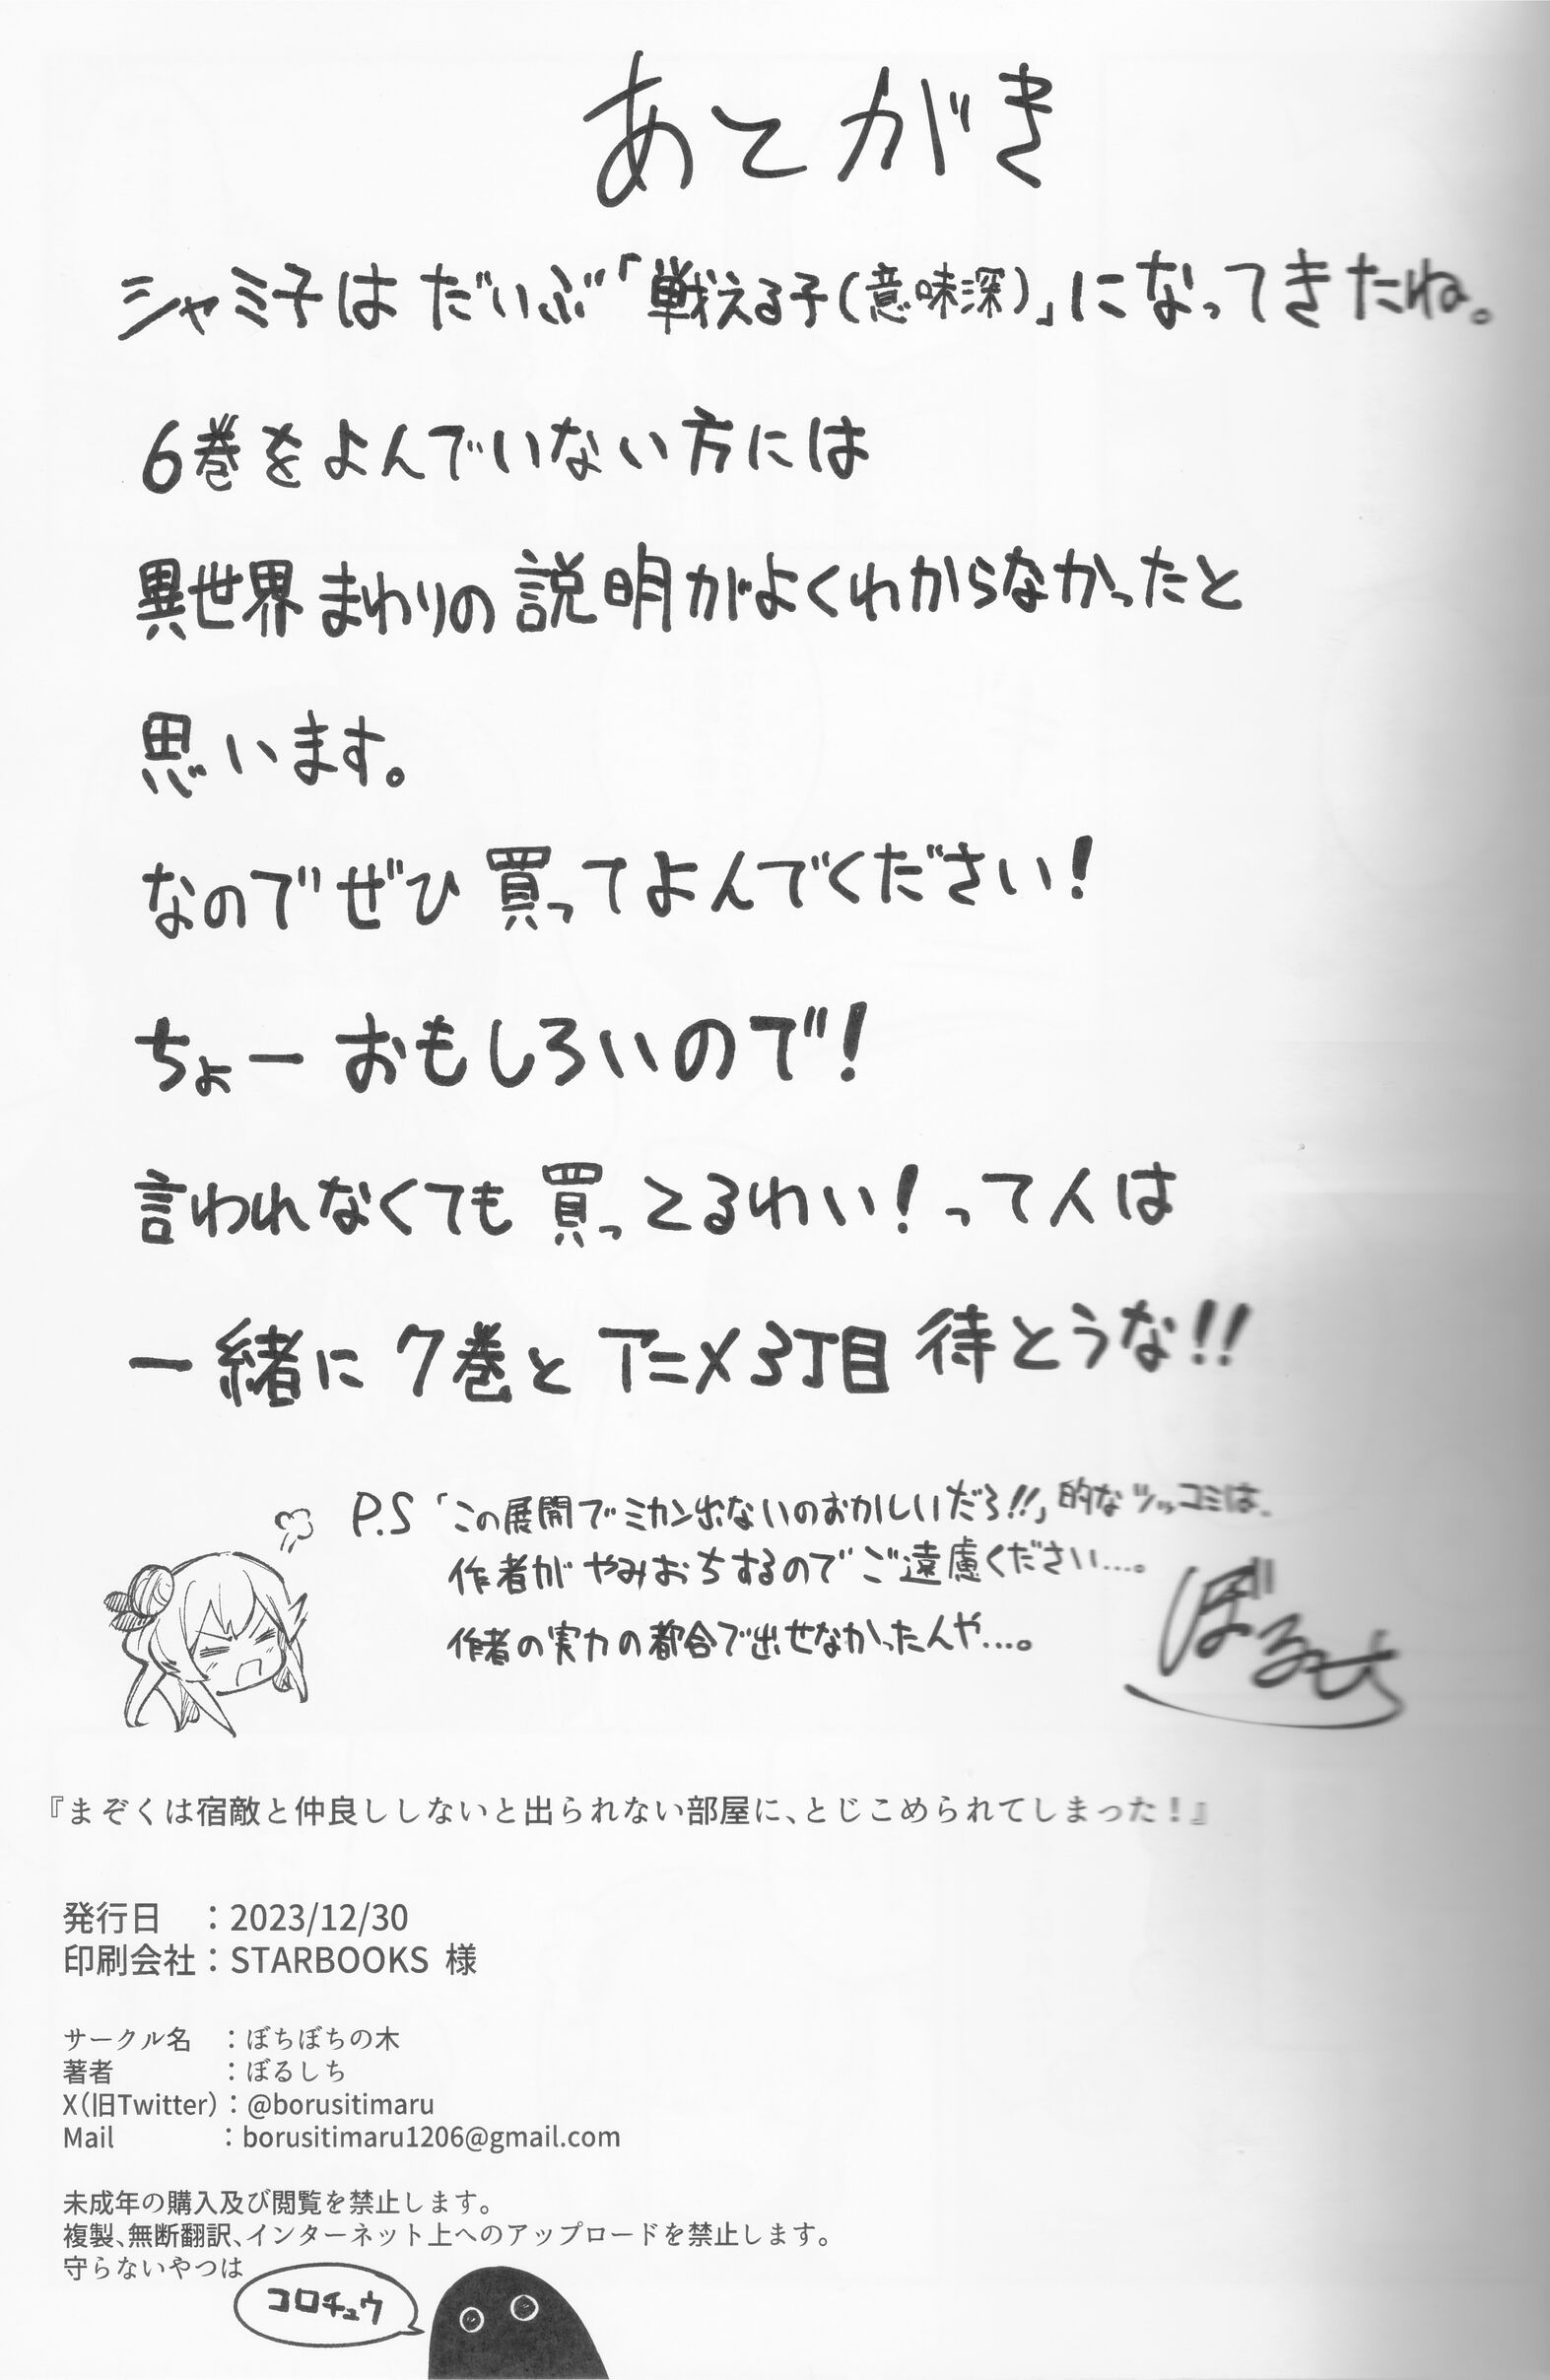 あとがき
シャミ子はだいぶ「戦える子(意味深)」になってきたね。
6巻をよんでいない方には
異世界まわりの説明がよくわからなかったと
思います。
なのでぜひ買ってよんでください!
ちょーおもしろいので!
言われなくても買ってるわい!って人は
一緒に7巻とアニメ3丁目待とうな!!
P.S「この展開でミカン出ないのおかしいだろ!!」的なツッコミは、
作者がやみおちするのでご遠慮ください…。
作者の実力の都合で出せなかったんや…。
ぼるしち
『まぞくは宿敵と仲良ししないと出られない部屋に、とじこめられてしまった!』
発行日 :2023/12/30
印刷会社:STARBOOKS 様
サークル名 :ぼちぼちの木
著者 :ぼるしち
X(旧Twitter):@borusitimaru
Mail :borusitimaru1206@gmail.com
未成年の購入及び閲覧を禁止します。
複製、無断翻訳、インターネット上へのアップロードを禁止します。
守らないやつは
コロチュウ